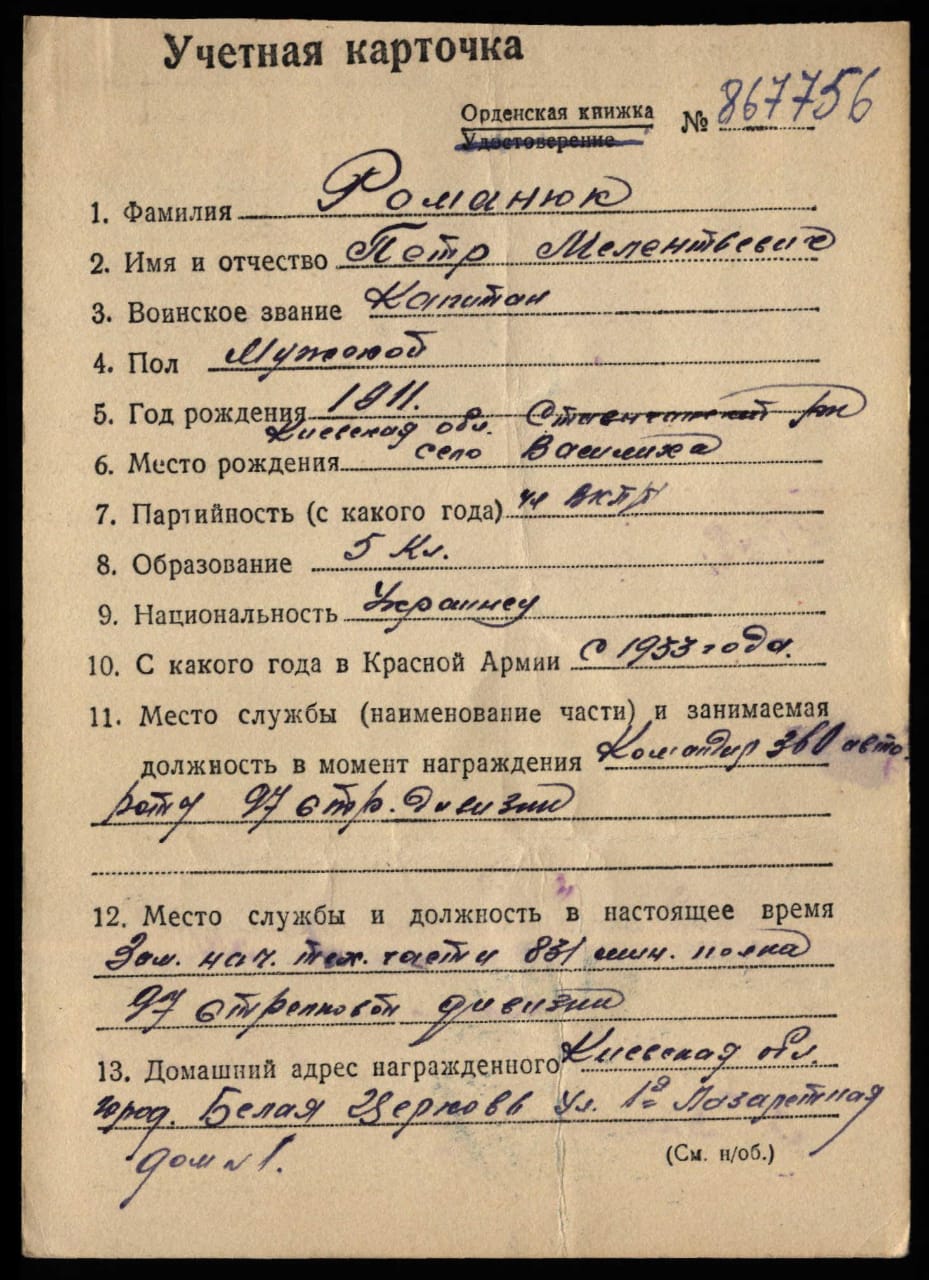 Учетная карточка
Орденская книжка № 867756
Удостоверение
1. Фамилия Романюк
2. Имя и отчество Петр Мелентьевич
3. Воинское звание Капитан
4. Пол Мужской
5. Год рождения 1911.
Киевская обл. рн
6. Место рождения село Василиха
7. Партийность (с какого года) чл ВКП
8. Образование 5 Кл.
9. Национальность Украинец
10. С какого года в Красной Армии с 1933 года.
11. Место службы (наименование части) и занимаемая
должность в момент награждения Командир авто
роты 97 стр. дивизии
12. Место службы и должность в настоящее время
Зам. нач. тех. части 831 мин. полка
97 стрелковой дивизии
13. Домашний адрес награжденного Киевская обл.
город. Белая Церковь ул. 1я Лазаретная
дом №1.
(См. н/об.)